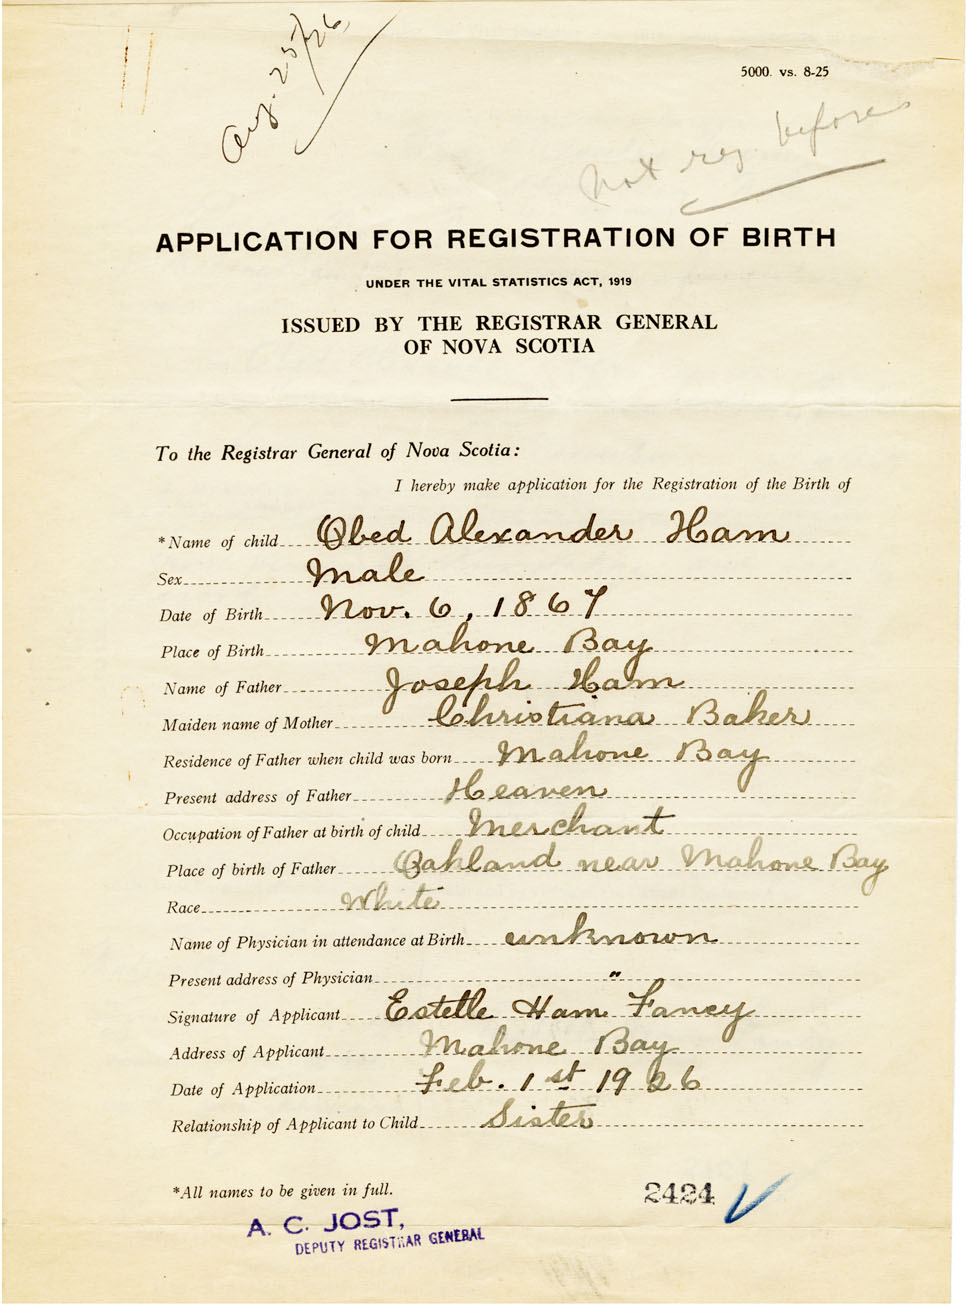 Aug. 25/26
5000. vs. 8-25
Not reg before
APPLICATION FOR REGISTRATION OF BIRTH
UNDER THE VITAL STATISTICS ACT, 1919
ISSUED BY THE REGISTRAR GENERAL
OF NOVA SCOTIA
To the Registrar General of Nova Scotia:
I hereby make application for the Registration of the Birth of
*Name of child Obed Alexander Ham
Sex Male
Date of Birth Nov. 6, 1867
Place of Birth Mahone Bay
Name of Father Joseph Ham
Maiden name of Mother Christiana Baker
Residence of Father when child was born Mahone Bay
Present address of Father Heaven
Occupation of Father at birth of child Merchant
Place of birth of Father Oakland near Mahone Bay
Race White
Name of Physician in attendance at Birth unknown
Present address of Physician "
Signature of Applicant Estelle Ham Fancy
Address of Applicant Mahone Bay
Date of Application Feb. 1st 1926
Relationship of Applicant to Child Sister
*All names to be given in full.
2424
A. C. JOST,
DEPUTY REGISTRAR GENERAL